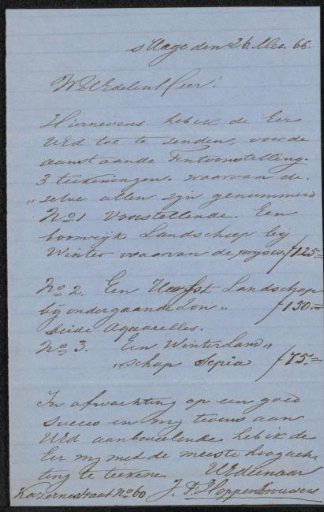 s'Hage den 26 Dec. 66.
WelEdele Heer!
Hiernevens heb ik de Eer
UEd toe te zenden, voor de
aanstaande tentoonstelling.
3 teekeningen waarvan de
"selve allen zijn genummerd
No 1 Voorstellende. Een
boomrijk Landschap bij
Winter waarvan de prijs is f125=
No 2. Een Herfst Landschap
bij ondergaande Zon" f130=
beide Aquarelles.
No 3. Een Winterland"
"schap Sepia f75=
In afwachting op een goed
Succes en mij tevens aan
UEd aanbevelende heb ik de
Eer mij met de meeste hoogach
ting te teekenen UEdDienaar
Kazernestraat No 60 J. F. Hoppenbrouwers